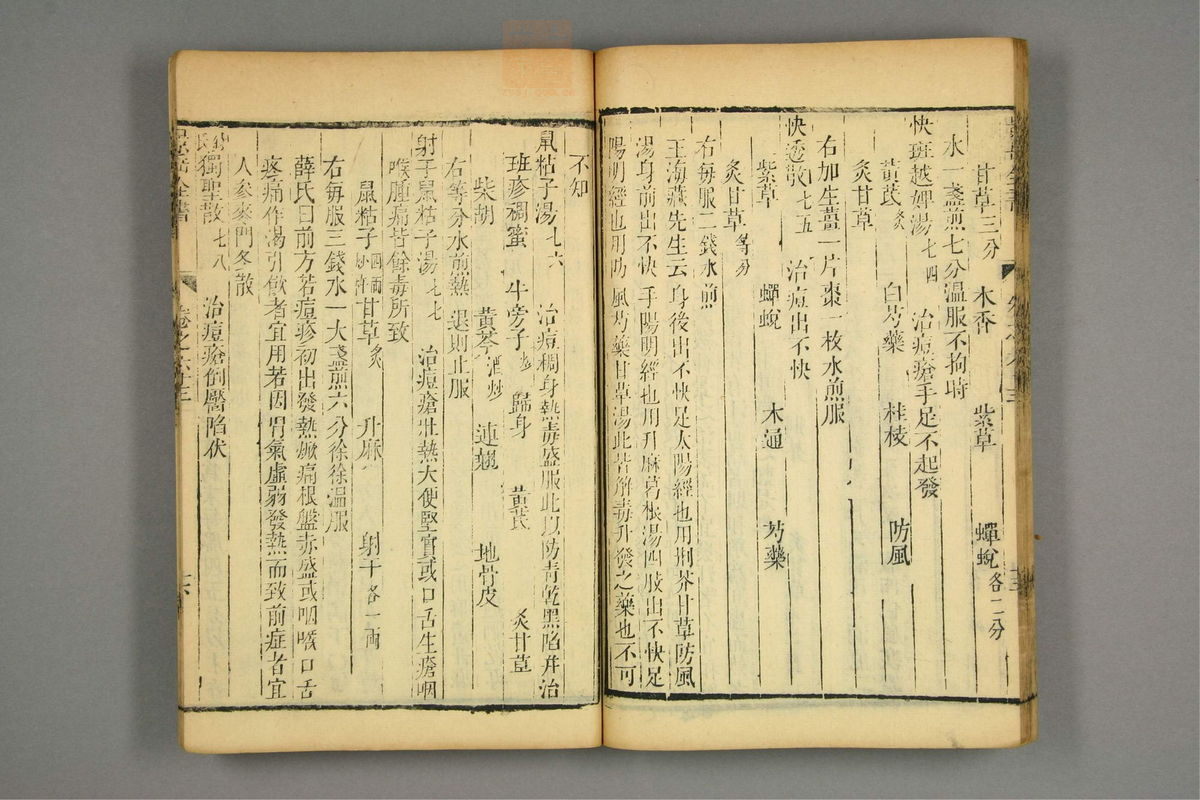 甘草三分　木香　紫草　蟬蛻各二分
水一盞煎七分溫服不拘時
快斑越婢湯七四　治痘瘡手足不起發
黃芪炙　白芍藥　桂枝　防風
炙甘草
右加生薑一片棗一枚水煎服
快透散七五　治痘出不快
紫草　蟬蛻　木通　芍藥
炙甘草等分
右每服二錢水煎
王海藏先生云身後出不快足太陽經也用荆芥甘草防風
湯身前出不快手陽明經也用升麻葛根湯四肢出不快足
陽明經也用防風芍藥甘草湯此皆解毒升發之藥也不可
不知
鼠粘子湯七六　治痘稠身熱毒盛服此以防青乾黑陷并治
班疹稠蜜　牛旁子炒　歸身　黃芪　炙甘草
柴胡　黃芩酒炒　連翹　地骨皮
右等分水煎熱退則止服
射干鼠粘子湯七七　治痘瘡壯熱大便堅實或口舌生瘡咽
喉腫痛皆餘毒所致
鼠粘子四兩炒杵　甘草炙　升麻　射干各一兩
右每服三錢水一大盞煎六分徐徐溫服
薛氏曰前方若痘疹初出發熱焮痛根盤赤盛或咽喉口舌
疼痛作渴引飲者宜用若因胃氣虛弱發熱而致前症者宜
人參麥門冬散
獨聖散七八　治痘瘡倒黶陷伏
卷之六十三
十六